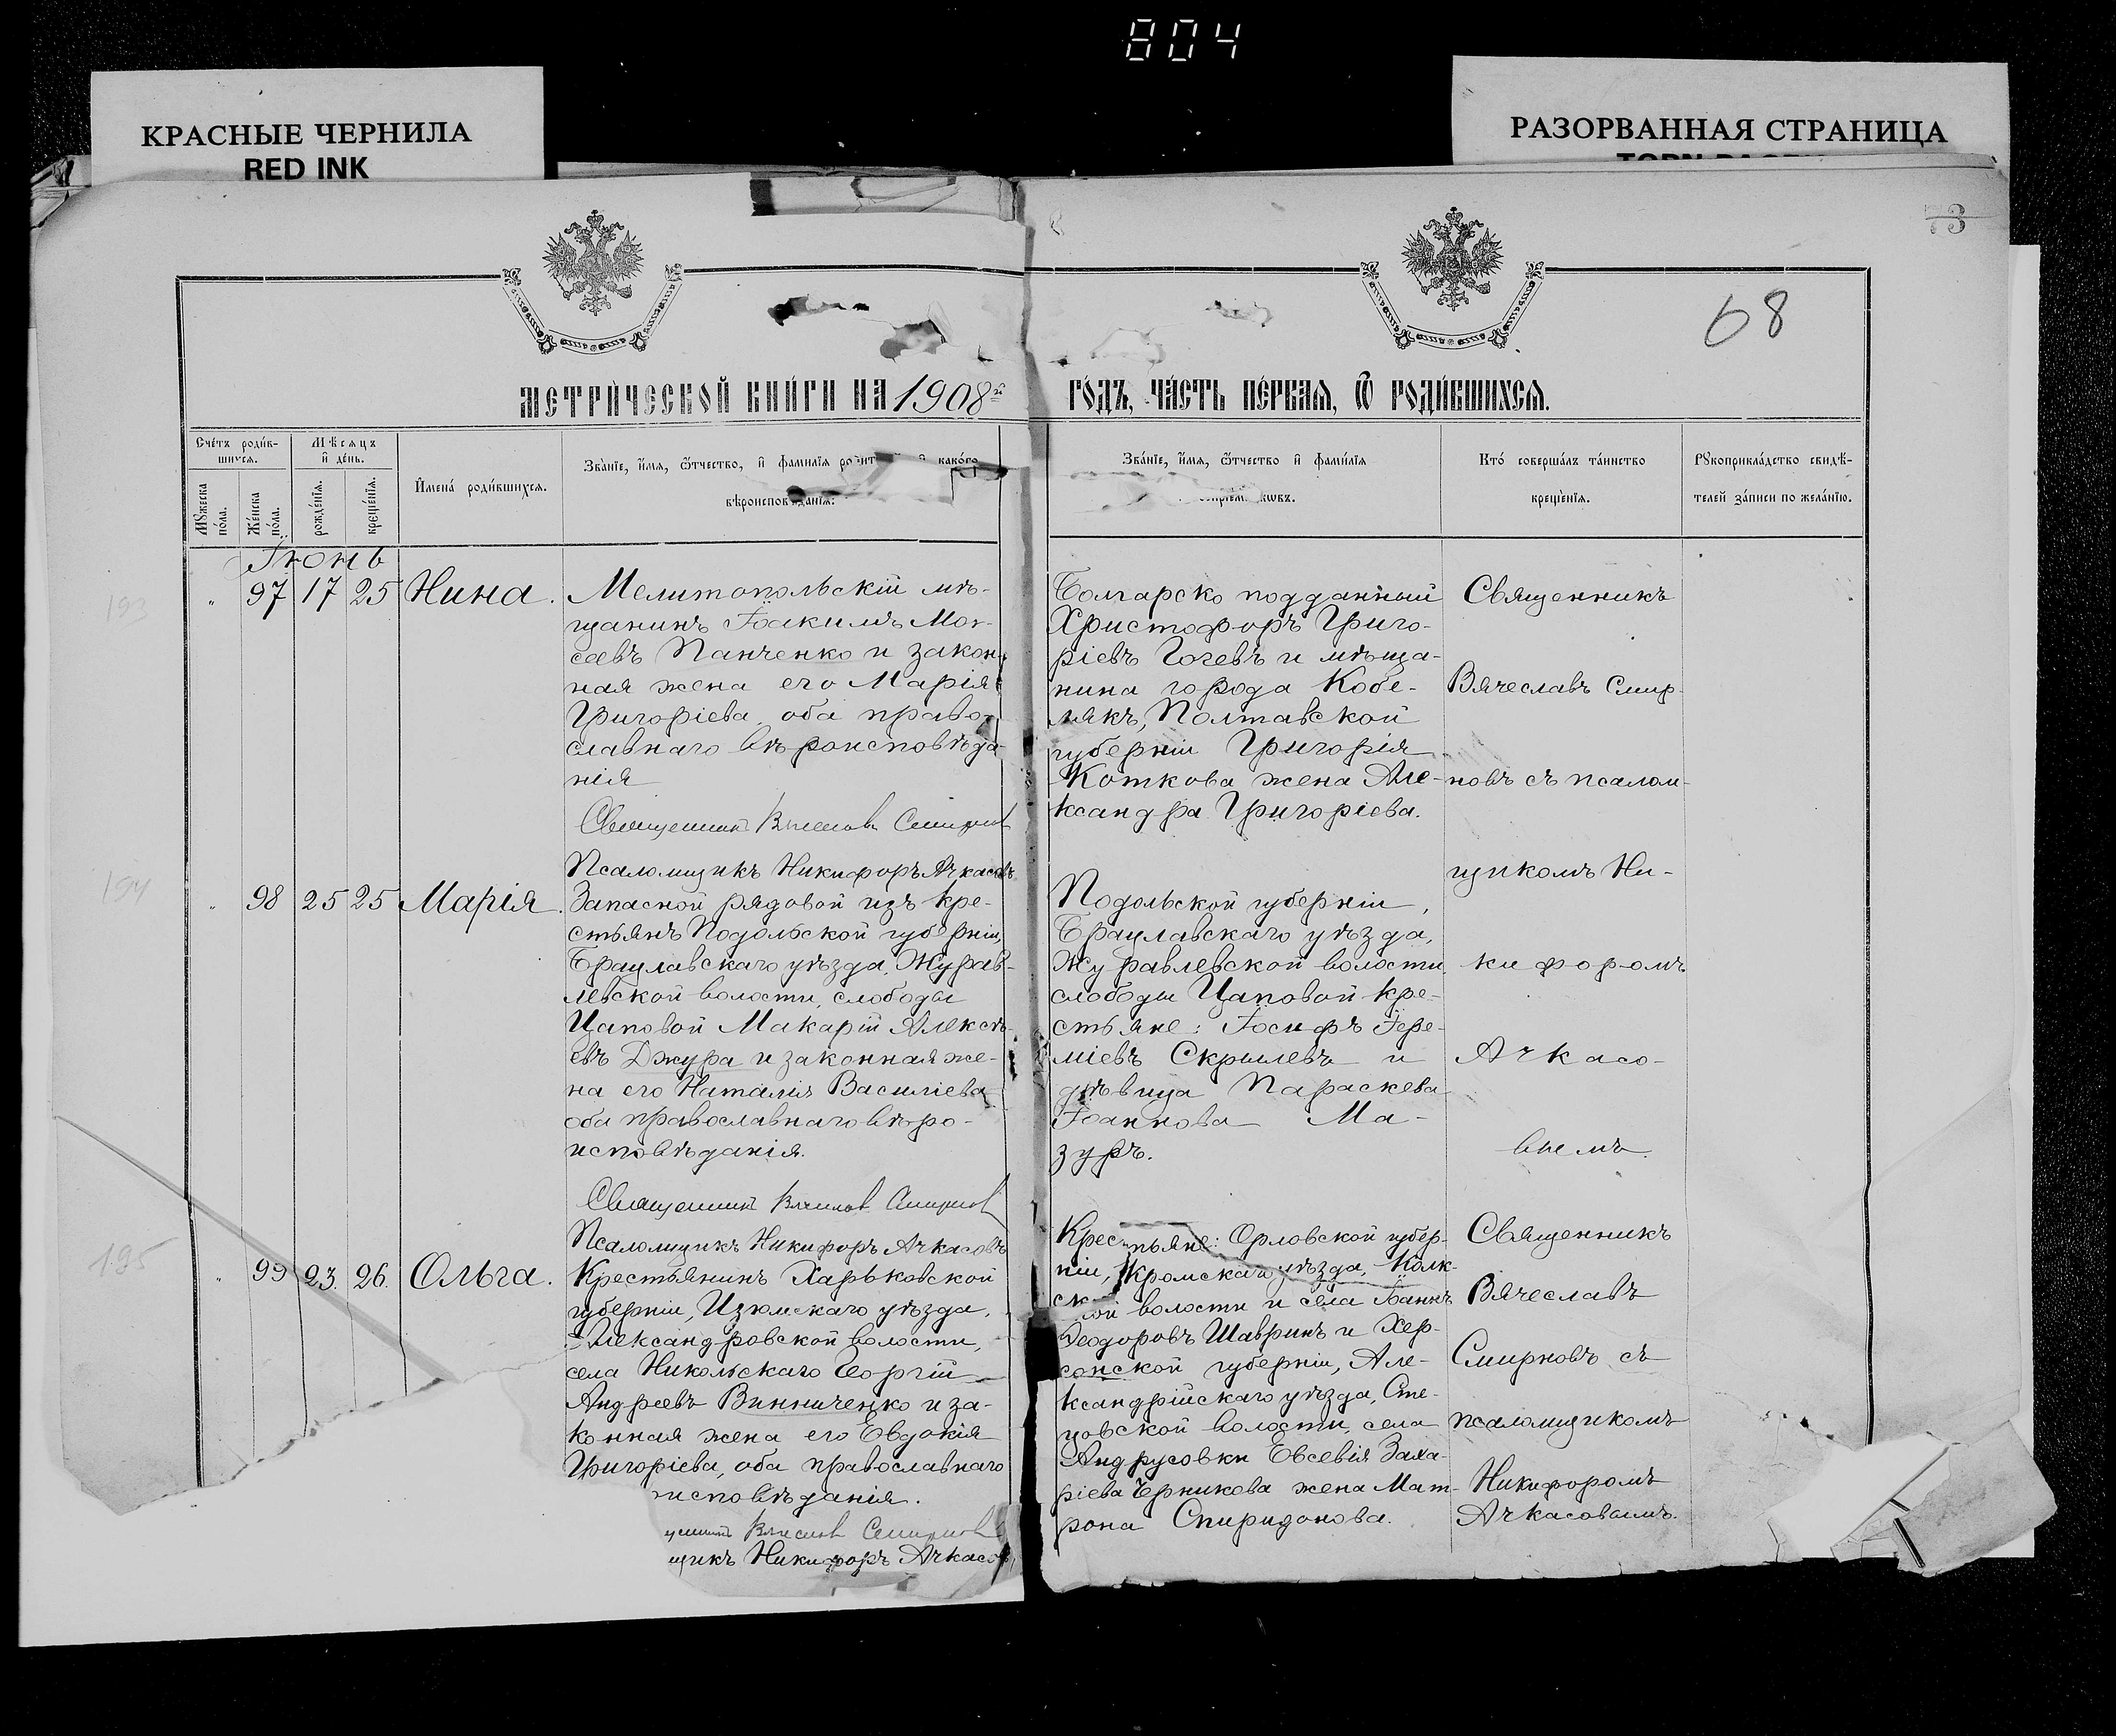 804
КРАСНЫЕ ЧЕРНИЛА
RED INK
РАЗОРВАННАЯ СТРАНИЦА
73
68
МЕТРИ́ЧЕСКОЙ КНИ́ГИ НА 1908й
ГО́ДЪ, ЧА́СТЬ ПЕ́РВАЯ, Ѡ РОДИ́ВШИХСЯ.
Сче́тъ роди́в-
шихся.
Мѣсяцъ
и де́нь.
Мꙋжеска
по́ла.
Же́нска
по́ла.
рожде́нїя.
креще́нїя.
Имена́ роди́вшихся.
Зва́нїе, и́мя, ѻ҆́тчество, и҆ фами́лїя и҆ како́го
вѣроисповѣданїя.
Зва́нїе, и́мя, ѻ҆́тчество и҆ фами́лїя
Кто́ соверша́лъ та́инство
креще́нїя.
Рꙋкоприкла́дство свидѣ́-
телей за́писи по жела́нїю.
Іюнь
193
" 97 17 25 Нина.
Мелитопольскій мѣ-
щанинъ Іоакимъ Мои-
сеевъ Панченко и закон-
ная жена его Марія
Григоріева, оба право-
славнаго вѣроисповѣда-
нія
Священникъ Вячеславъ Смирновъ
Псаломщикъ Никифоръ Ачкасовъ
Болгарско подданный
Христофоръ Григо-
ріевъ Гочевъ и мѣща-
нина города Кобе-
лякъ, Полтавской
губерніи Григорія
Коткова жена Але-
ксандра Григоріева.
Священникъ
Вячеславъ Смир-
новъ съ псалом-
щикомъ Ни-
кифоромъ
Ачкасо-
вымъ.
194
" 98 25 25 Марія.
Запасной рядовой изъ кре-
стьянъ Подольской губерніи,
Брацлавскаго уѣзда, Журав-
левской волости, слободы
Цаповой Макарій Алексѣ-
евъ Джура и законная же-
на его Наталія Василіева
оба православнаго вѣро-
исповѣданія.
Священникъ Вячеславъ Смирновъ
Псаломщикъ Никифоръ Ачкасовъ
Подольской губерніи,
Брацлавскаго уѣзда,
Журавлевской волости
слободы Цаповой кре-
стьяне: Іосифъ Іере-
міевъ Скрылевъ и
дѣвица Параскева
Іоаннова Ма-
зуръ.
195
" 99 23. 26. Ольга.
Крестьянинъ Харьковской
губерніи, Изюмскаго уѣзда,
Александровской волости,
села Никольскаго Георгій
Андреевъ Винниченко и за-
конная жена его Евдокія
Григоріева, оба православнаго
исповѣданія.
Вячеславъ Смирновъ
щикъ Никифоръ Ачкасовъ
Крестьяне: Орловской губер-
ніи, Кромскаго уѣзда,
волости и села Іоаннъ
Ѳеодоровъ Шавринъ и Хер-
сонской губерніи, Але-
ксандрійскаго уѣзда, Сте-
цовской волости, села
Андрусовки Евсевія Заха-
ріева Черникова жена Мат-
рона Спиридонова.
Священникъ
Вячеславъ
Смирновъ съ
псаломщикомъ
Никифоромъ
Ачкасовымъ.